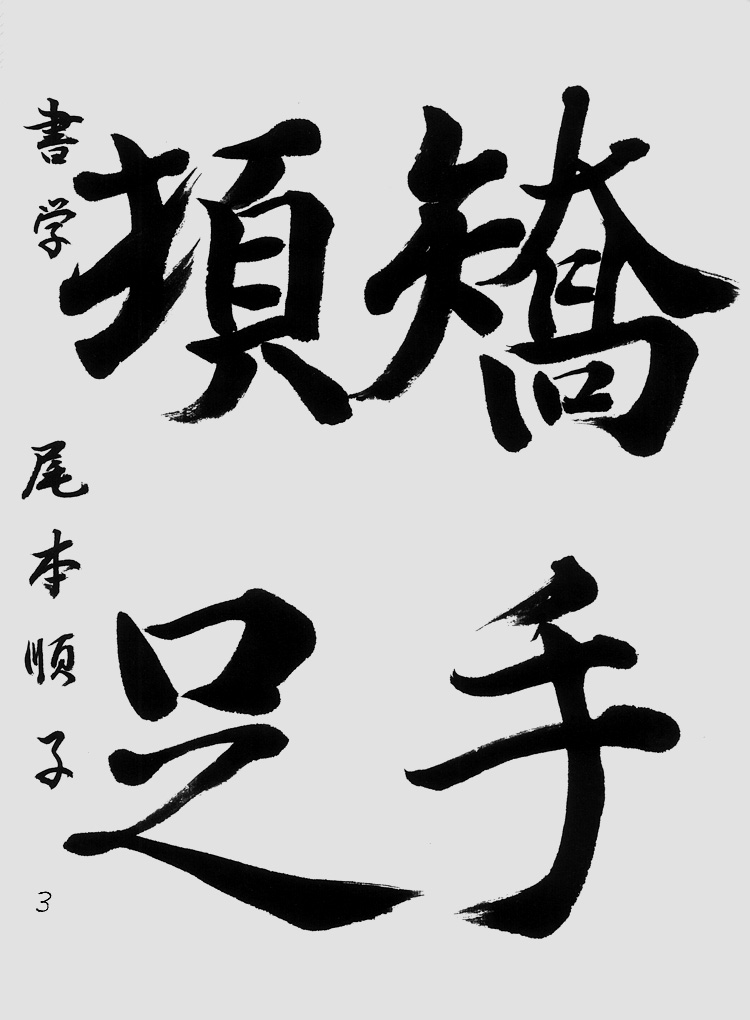 矯手
頓足
書学 尾本順子 3